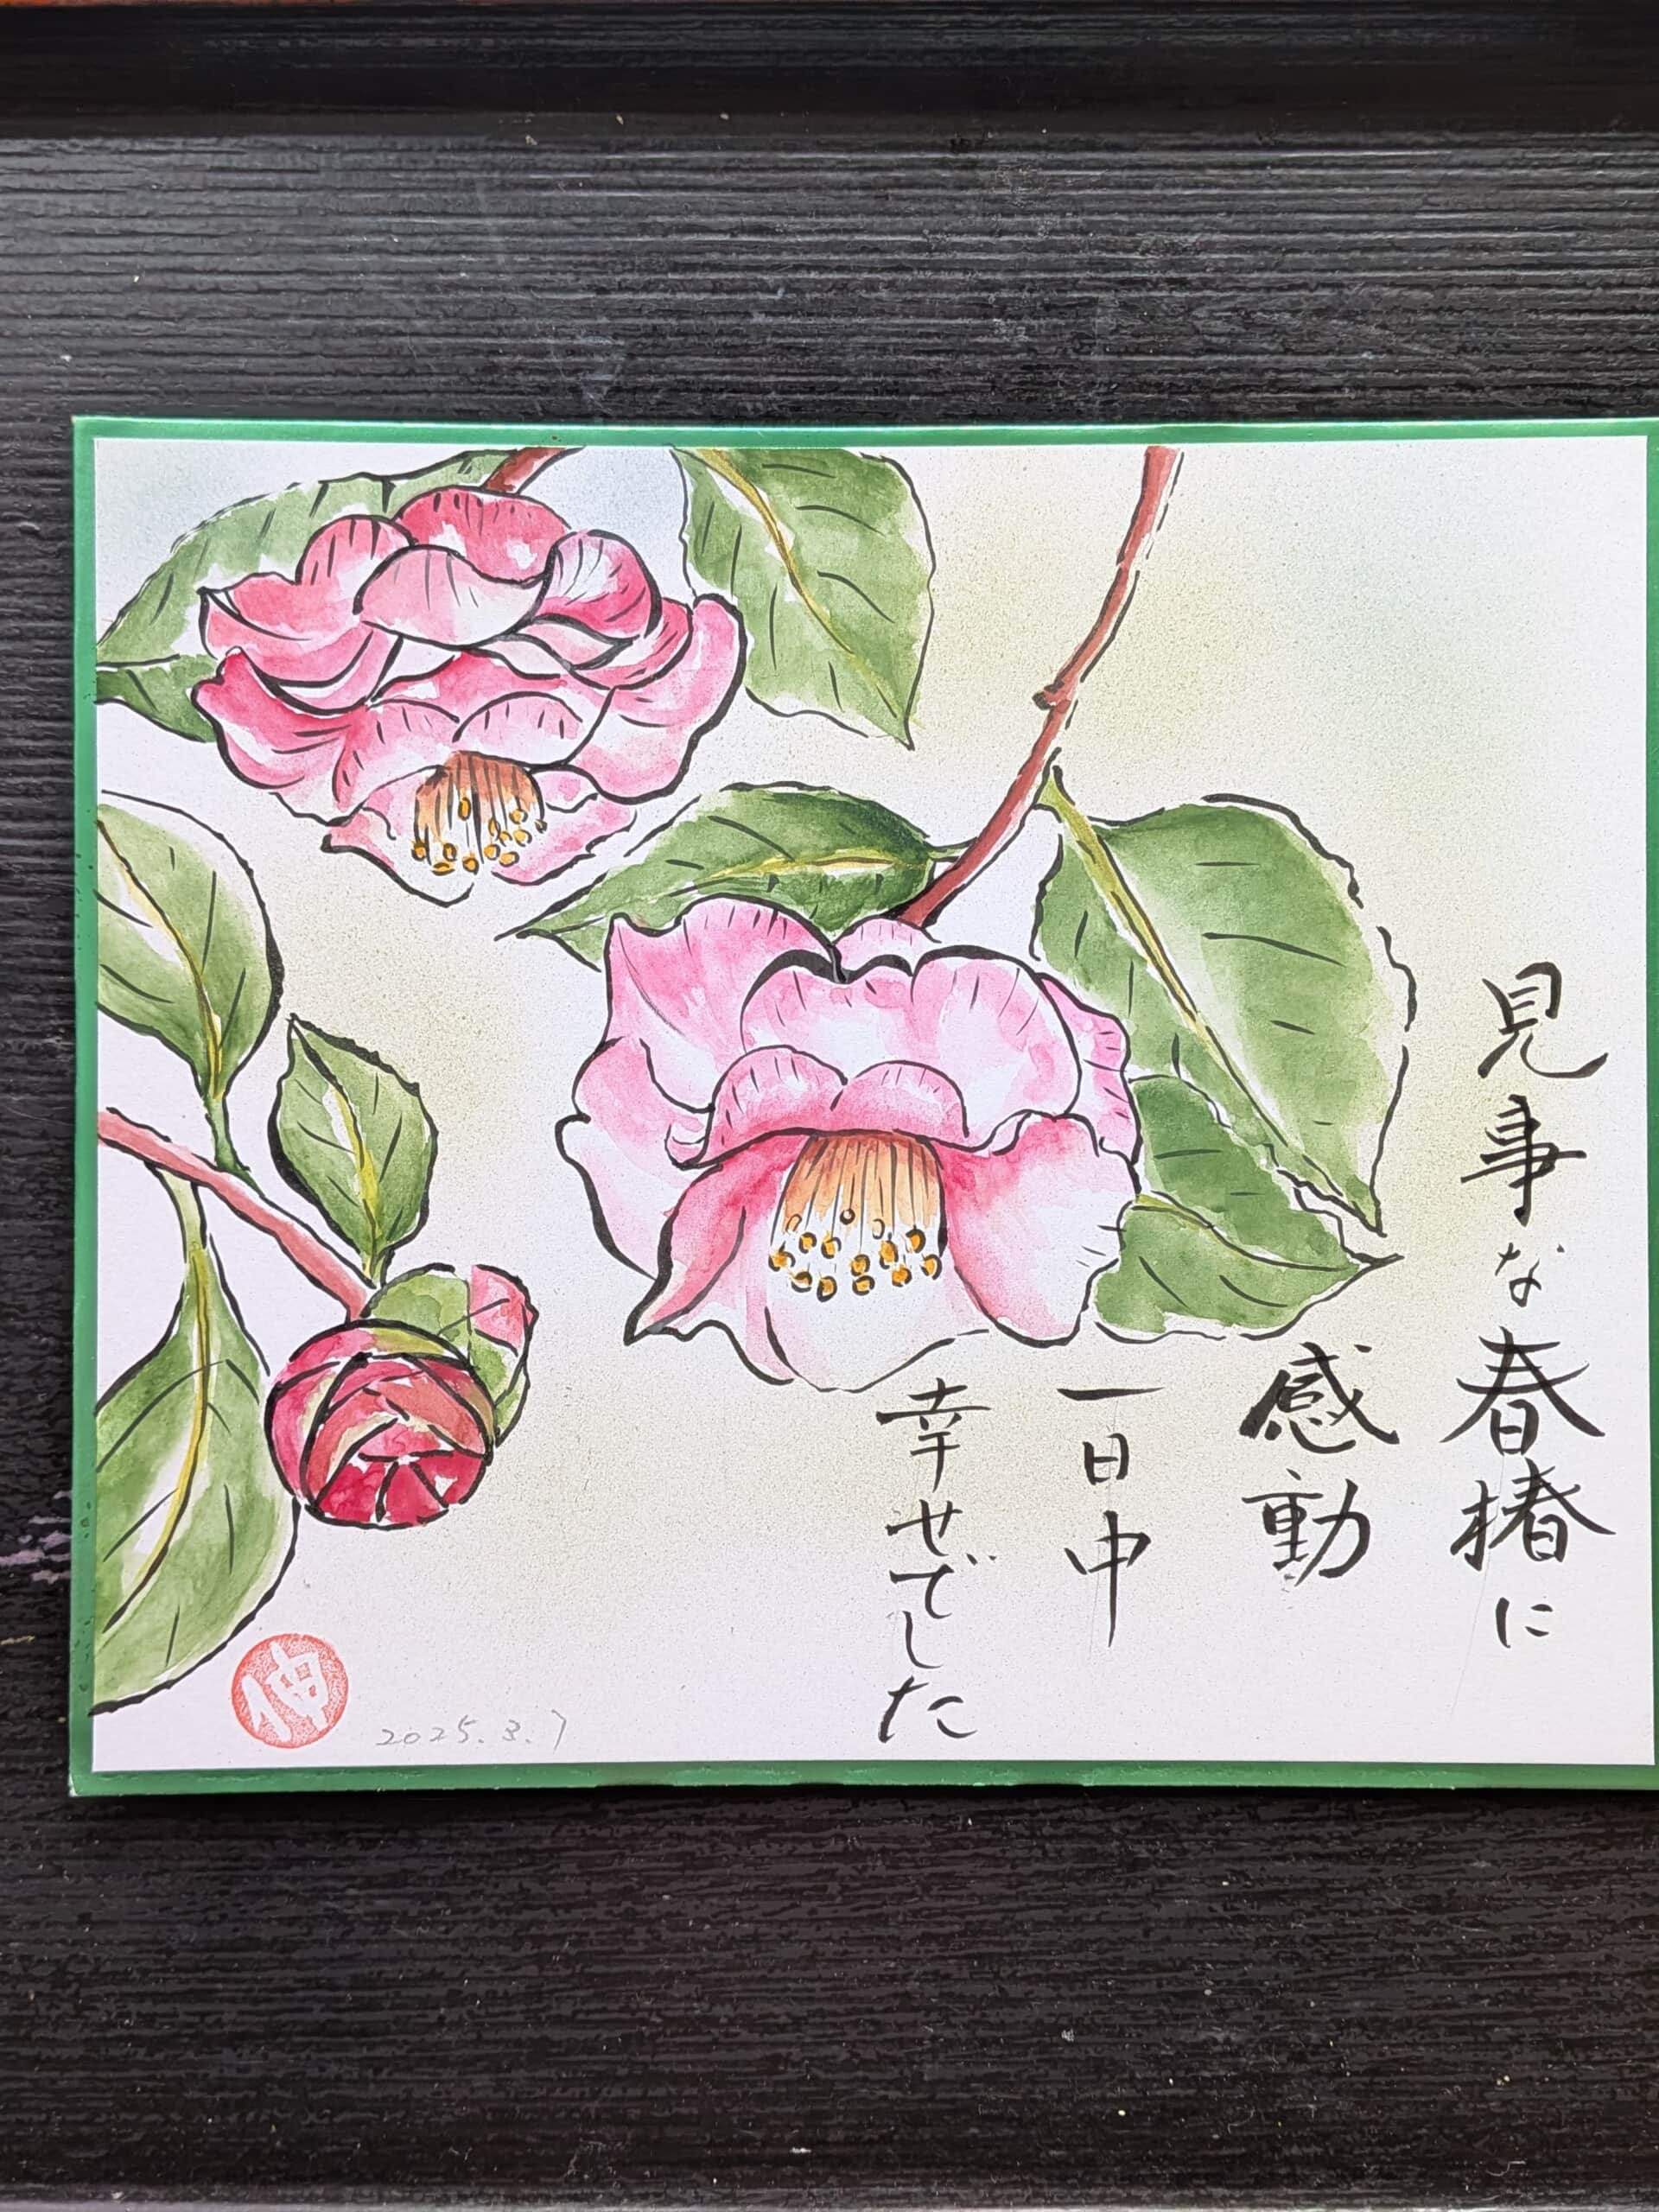 見事な春椿に
感動
一日中
幸せでした
伸
2025.3.7